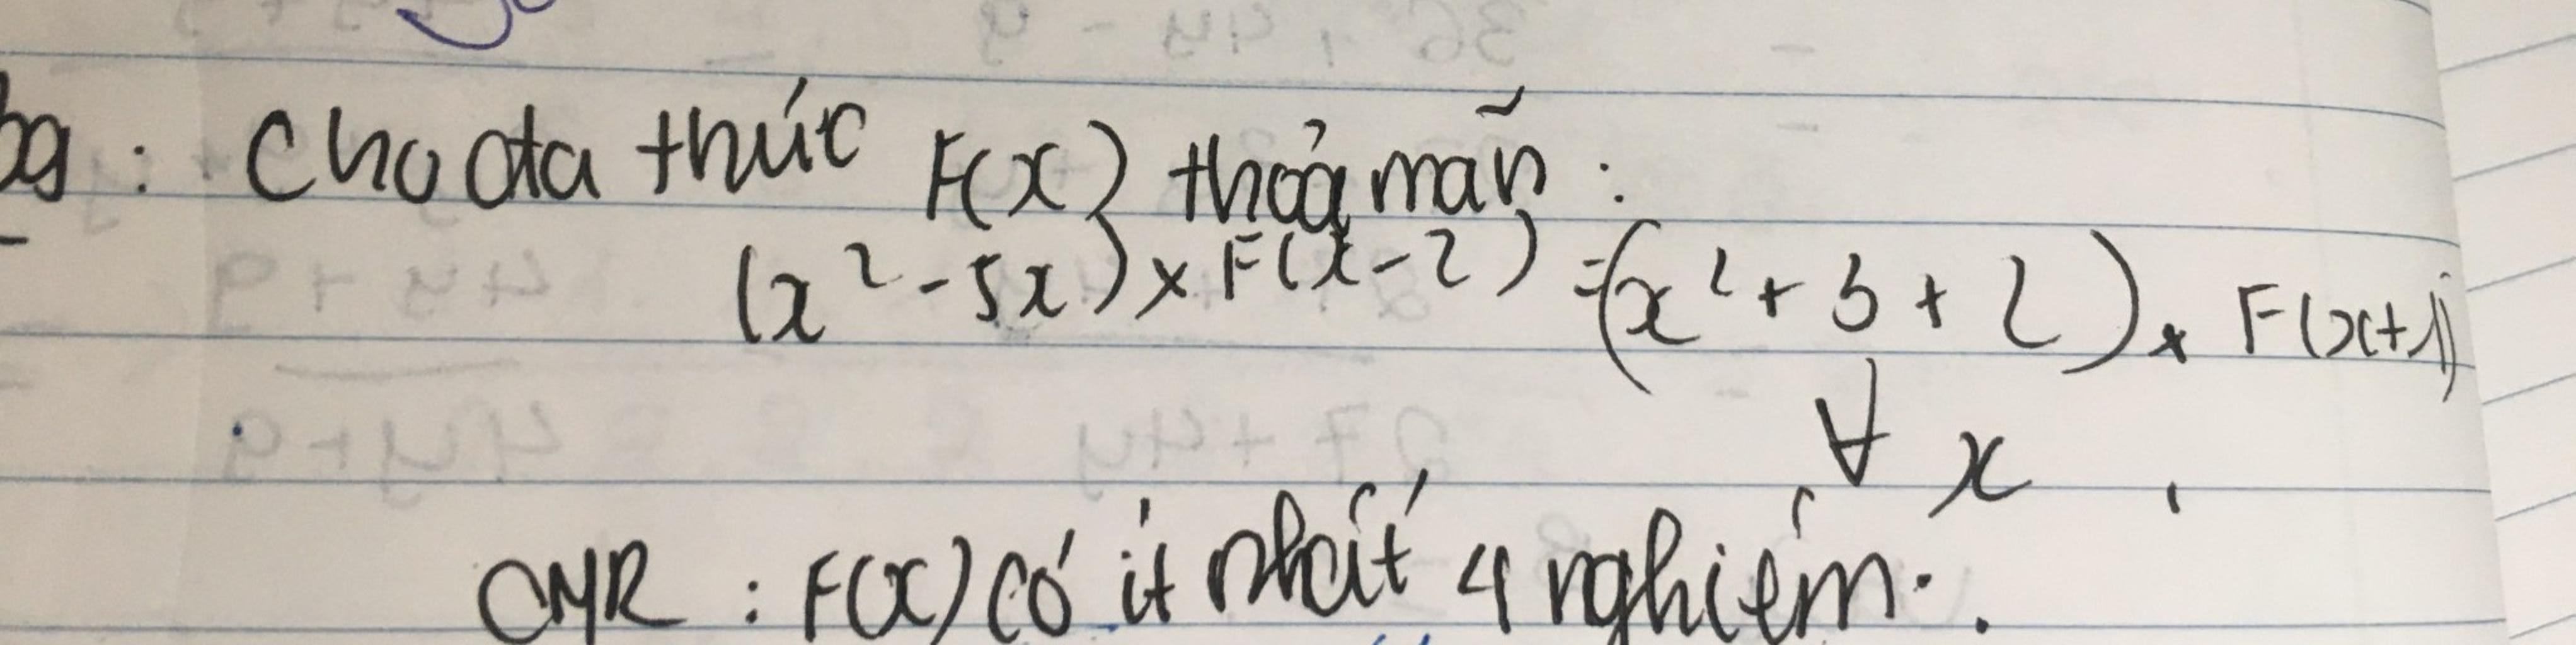 bg : Cho đa thức F(x) thoả mãn :
(x² - 5x) x F(x-2) = (x² + 3 + 2) x F(x+1)
∀ x .
CMR : F(x) có ít nhất 4 nghiệm .